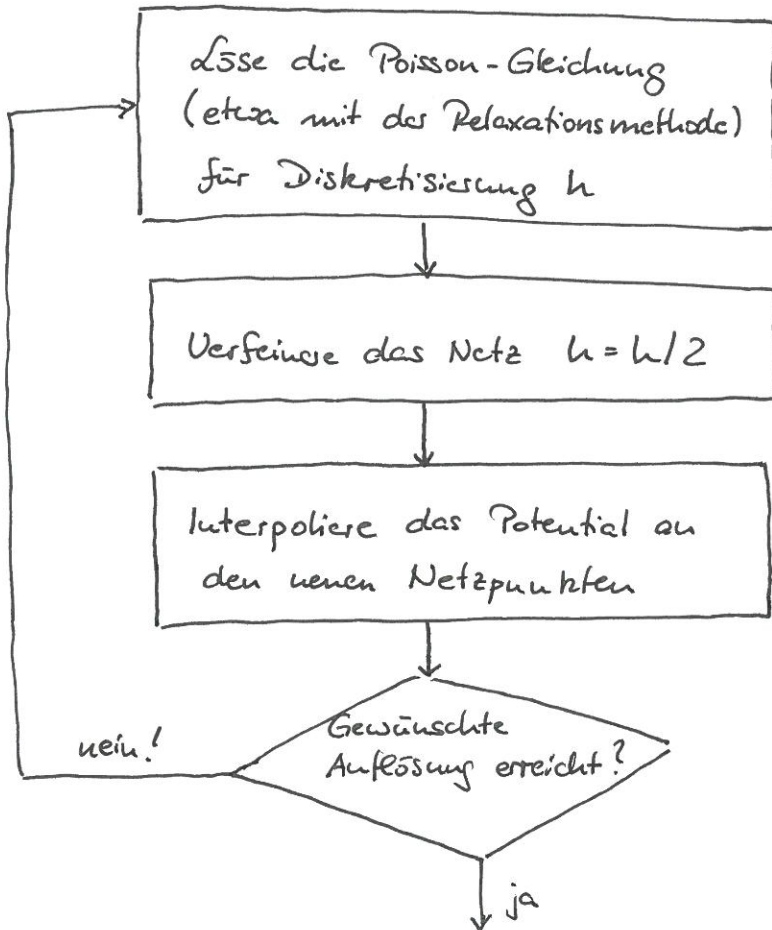 Löse die Poisson-Gleichung
(etwa mit der Relaxationsmethode)
für Diskretisierung h
Verfeinere das Netz h = h/2
Interpoliere das Potential an
den neuen Netzpunkten
Gewünschte
Auflösung erreicht?
nein!
ja